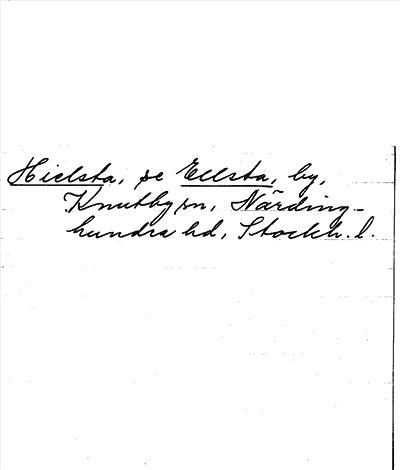 Hielsta, se Ellsta, by,
Knutby sn, Närding-
hundra hd, Stockh. l.